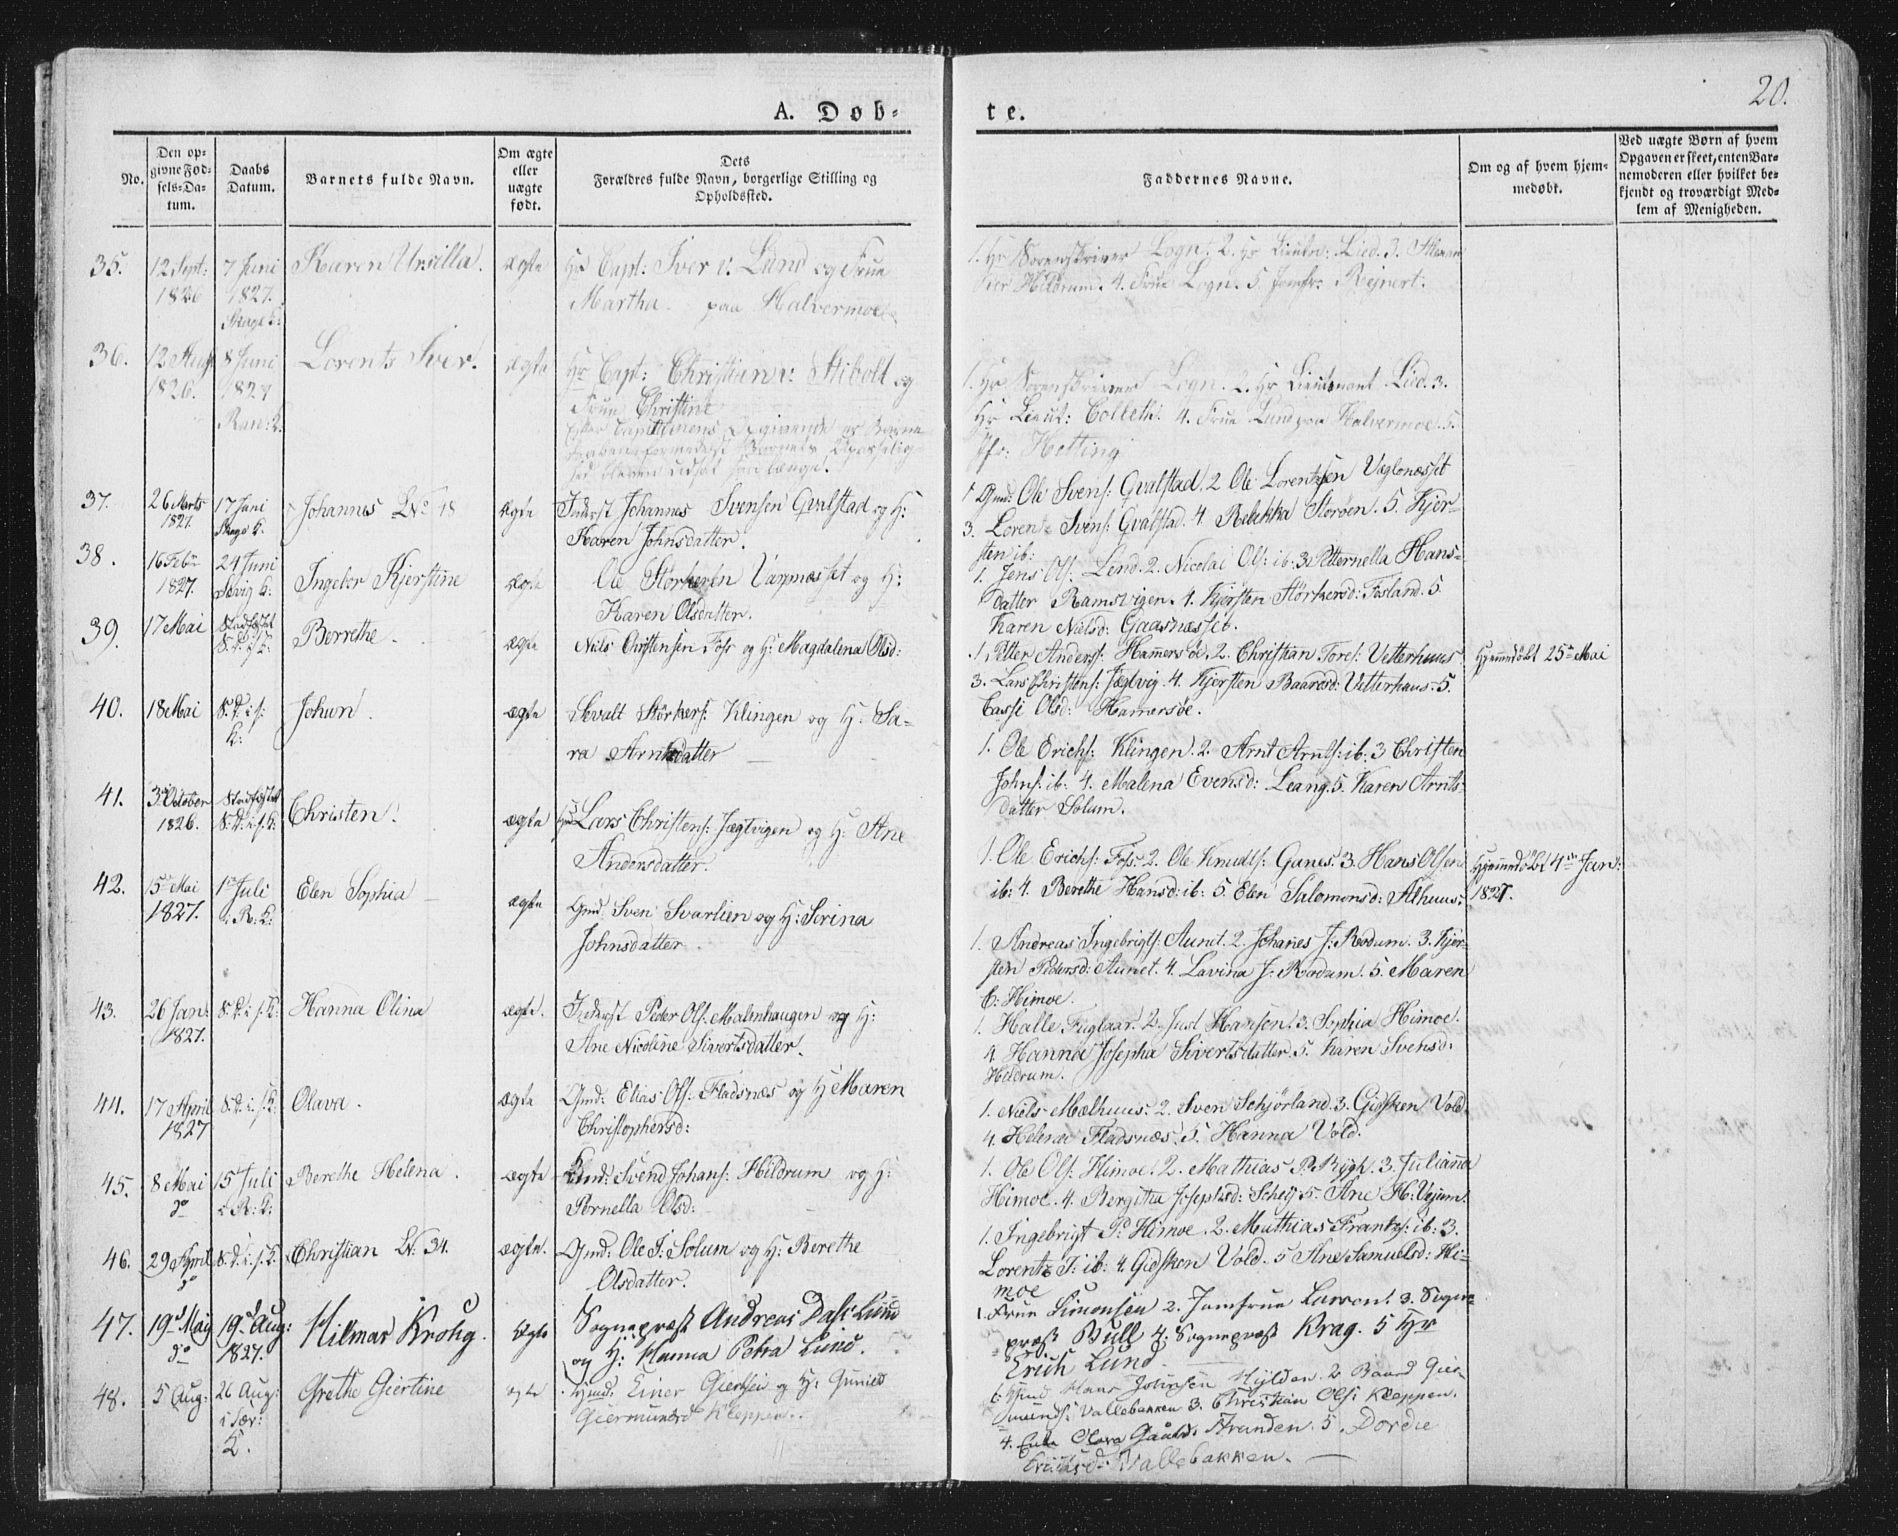 20.
A. Døb-
te.
No.
Den op-
givne Fød-
sels-Da-
tum.
Daabs
Datum.
Barnets fulde Navn.
Om ægte
eller
uægte
født.
Dets
Forældres fulde Navn, borgerlige Stilling og
Opholdssted.
Faddernes Navne.
Om og af hvem hjem-
medøbt.
Ved uægte Børn af hvem
Opgaven er skeet, enten Bar-
nemoderen eller hvilket be-
kjendt og troværdigt Med-
lem af Menigheden.
35. 12 Sept: 1826 7 Juni 1827. Karen Ursilla. ægte Hr Capt: Iver v: Lund og Frue
Martha paa Halvermoe
1. Hr Sorenskriver Logn. 2. Hr Lieutn: Lied. 3.
Hildrum. 4. Frue Logn. 5. Jomfr: Rejnert.
36. 1826. 8 Juni Lorents Iver. ægte Hr Capt: Christian v: Stibolt og
Frue Christine
1. Hr Sorenskriver Logn. 2. Hr Lieutenant Lied. 3.
Hr Lieut: Colleth. 4. Frue Lund paa Halvermoe. 5.
Jfr: Hotting
37. 26 Marts 1827. 17 Juni Johannes ægte Inderst Johannes Svensen Qvalstad og H:
Karen Johnsdatter.
1 Gmd: Ole Svens: Qvalstad. 2 Ole Lorentsen
3. Svens: Qvalstad. 4. Rebekka Storøen. 5. Kjer-
sten ib:
38. 16 Feb: 1827. 24 Juni Ingebor Kjerstine ægte Ole Størkersen og H:
Karen Olsdatter.
1. Jens Ols: Lund. 2. Nicolai Ols: ib: 3. Petternella Hans-
datter Ramsvigen. 4. Kjersten Størkersd: Fosland. 5
Karen Nielsd:
39. 17 Mai Berrethe. ægte Niels Christensen Foss og H: Magdalena Olsd:
1. Petter Anders: Hammersøe. 2. Christian Tores: Vetterhuus
3. Lars Christens: Jægtvig. 4. Kjersten Baardsd: Vetterhuus. 5.
Olsd: Hamersøe.
Hjemmedøbt 25de Mai
40. 18 Mai Johan. ægte Sevalt Størkers: Klingen og H: Sa-
ra Arntsdatter
1. Ole Erichs: Klingen. 2. Arnt Arnts: ib: 3 Christen
Johns: ib: 4. Malena Evensd: Leang. 5. Karen Arnts-
datter Solum.
41. 3 October 1826. Christen. ægte Lars Christens: Jægtvigen og H: Ane
Andersdatter.
1. Ole Erichs: Foss. 2. Ole Knudts: Ganes. 3. Hans Olsen
ib: 4. Berethe Hansd: ib: 5. Elen Salomonsd: Alhuus:
Hjemmedøbt 4de Jan:
1827.
42. 5 Mai 1827. 1 Juli i R: K: Elen Sophia ægte Gmd: Sven Svarlien og H: Serina
Johnsdatter.
1. Andreas Ingebrigts: Aunet. 2. Johanes J: Rodum. 3. Kjer-
sten Pedersd: Aunet. 4. Lavina J: Rodum. 5. Maren
E: Himoe.
43. 26 Jan: 1827. S: D: i s: K: Hanna Olina ægte. Inderst Peder Ols: Malmhaugen og H:
Ane Nicoline Sivertsdatter.
1. Halle Fuglaar. 2. Just Hansen. 3. Sophia Himoe.
4 Hanna Josepha Sivertsdatter. 5. Karen Svensd:
Hildrum.
44. 17 April 1827 S: D: i s: K: Olava. ægte Gmd: Elias Ols: Fladsnæs og H Maren
Christophersd:
1. Niels Mælhuus: 2. Sven Schjørland. 3. Gidsken Vold.
4. Helena Fladsnæs. 5. Hanna Vold.
45. 8 Mai do 15 Juli i R: K: Berethe Helena. ægte Gmd: Svend Johans: Hildrum og H:
Pernella Olsd:
1. Ole Ols: Himoe. 2. Mathias P: Rygh. 3. Julianna
Himoe. 4. Bergitha Josephsd: 5. Ane
46. 29 April do S: D: i s: K: Christian Nr: 34. ægte. Gmd: Ole J: Solum og H: Berethe
Olsdatter.
1. Ingebrigt P: Himoe. 2. Mathias Frantzs: ib: 3.
Lorents J: ib: 4. Gidsken Vold. 5 Ane Samuelsd: Hi-
moe
47. 19d May do 19d Aug: 1827. Hilmar Krohg. ægte Sognepræst Andreas Dass Lund
og H: Hanna Petra Lund.
1. Frue Simonsen 2. Jomfrue Larsen. 3. Sogne-
præst Bull 4. Sognepræst Krag. 5 Hr
Erich Lund.
48. 5 Aug: 26 Aug: i Sær: K. Grethe Giertine ægte Huusmd: Einer Giertsen og H: Gunild
Giermundsd Kleppen.
Hans Johnsen Hylden. 2. Baard Gier-
munds: Vallebakken 3. Christian Ols: Kleppen.
4. Enke Olava Stranden. 5. Dordie
Vallebakken.